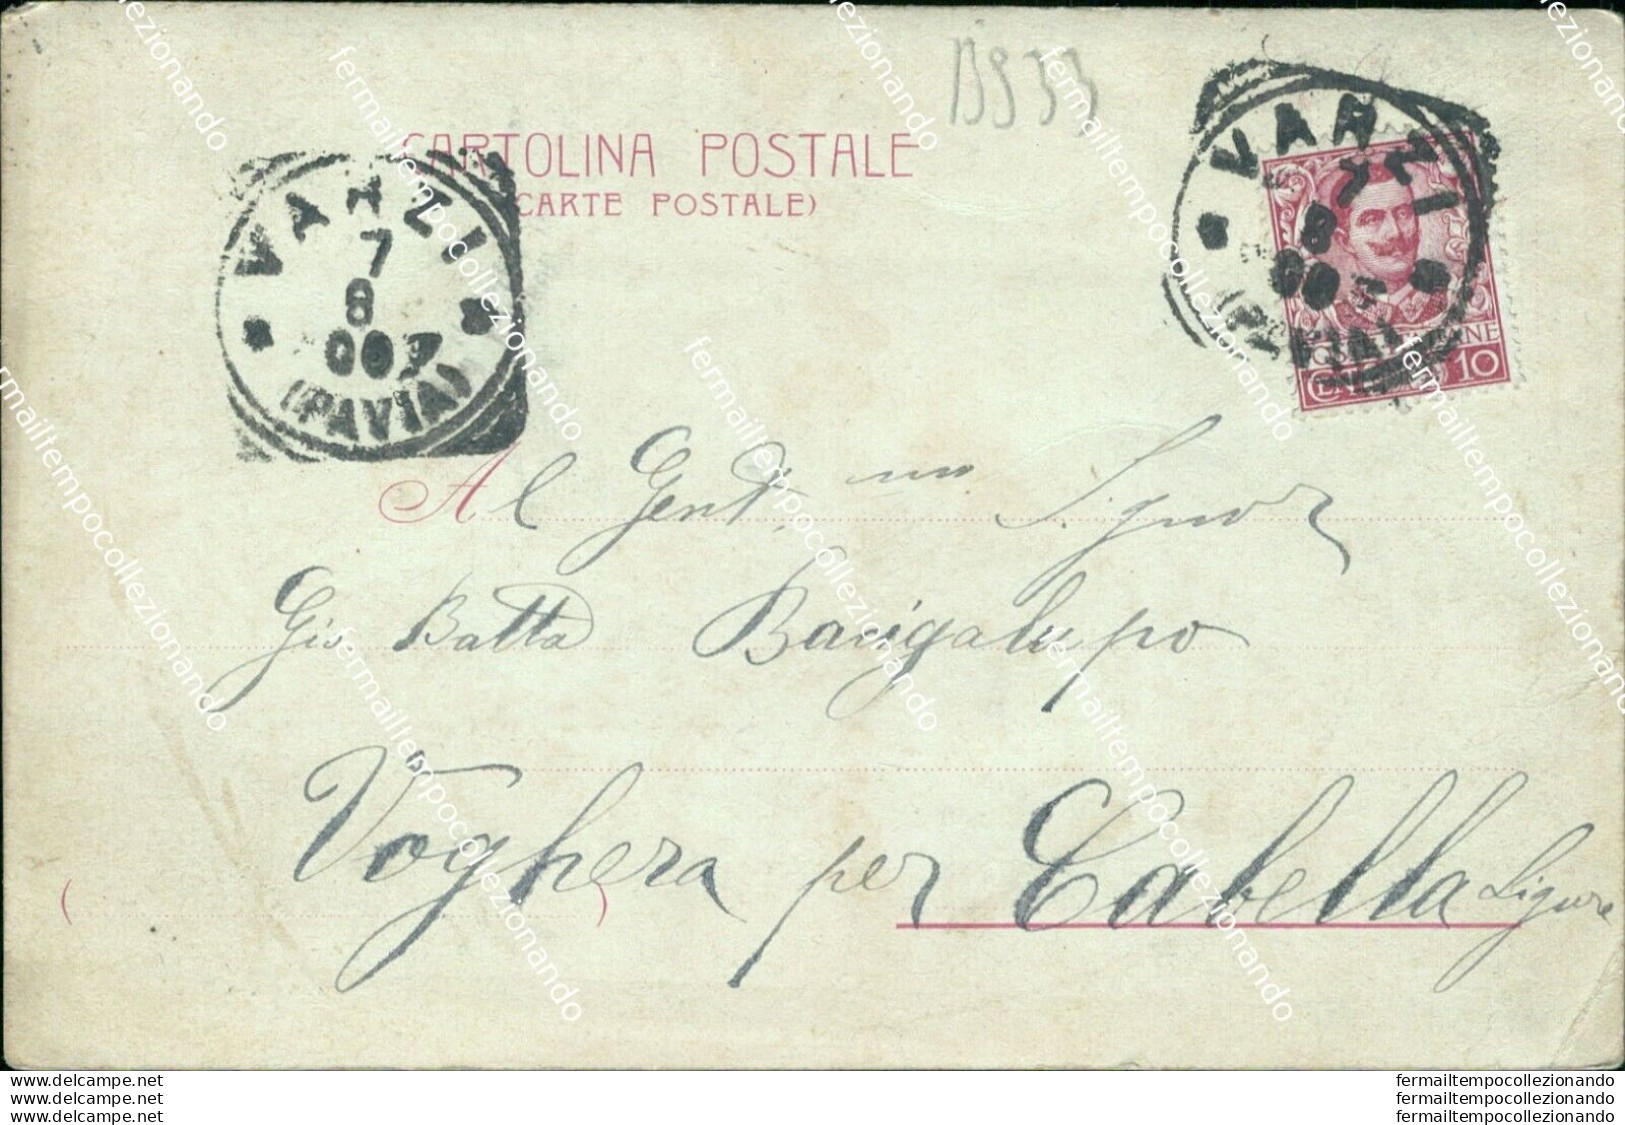 BS33
CARTOLINA POSTALE
(CARTE POSTALE)
VARZI
7
8
(PAVIA)
VARZI
7
8
00
(PAVIA)
10
Al Gent.mo Signor
Gio Batta Barigalupo
Voghera per Cabella Ligure
www.delcampe.net
www.delcampe.net
www.delcampe.net
fermailtempocollezionando
fermailtempocollezionando
fermailtempocollezionando